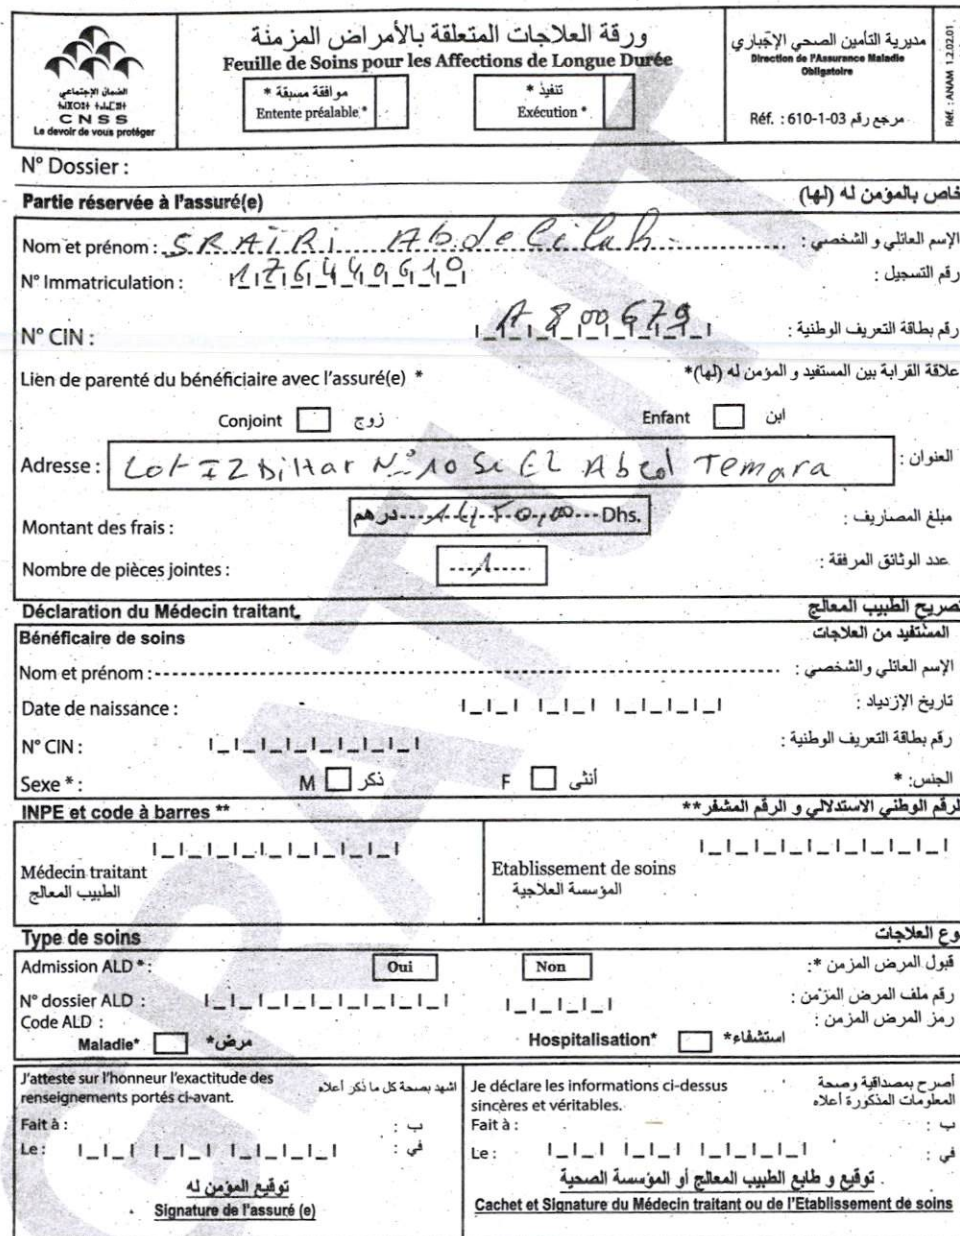 الضمان الإجتماعي
CNSS
Le devoir de vous protéger
ورقة العلاجات المتعلقة بالأمراض المزمنة
Feuille de Soins pour les Affections de Longue Durée
موافقة مسبقة *
Entente préalable *
تنفيذ *
Exécution *
مديرية التأمين الصحي الإجباري
Direction de l'Assurance Maladie
Obligatoire
Réf. : 610-1-03 مرجع رقم
Réf. : ANAM 1.2.02.01
N° Dossier :
Partie réservée à l'assuré(e) خاص بالمؤمن له (لها)
Nom et prénom : SRAIRI Abdelilah الإسم العائلي و الشخصي :
N° Immatriculation : 176440610 رقم التسجيل :
N° CIN : A 800679 رقم بطاقة التعريف الوطنية :
Lien de parenté du bénéficiaire avec l'assuré(e) * علاقة القرابة بين المستفيد و المؤمن له (لها)*
Conjoint زوج Enfant ابن
Adresse : Lot IZDiHar N° 10 Si EL Abed Temara العنوان :
Montant des frais : درهم Dhs. مبلغ المصاريف :
Nombre de pièces jointes : 1 عدد الوثائق المرفقة :
Déclaration du Médecin traitant تصريح الطبيب المعالج
Bénéficaire de soins المستفيد من العلاجات
Nom et prénom : الإسم العائلي والشخصي :
Date de naissance : تاريخ الإزدياد :
N° CIN : رقم بطاقة التعريف الوطنية :
Sexe * : M ذكر F أنثى الجنس: *
INPE et code à barres ** الرقم الوطني الاستدلالي و الرقم المشفر**
Médecin traitant
الطبيب المعالج
Etablissement de soins
المؤسسة العلاجية
Type de soins نوع العلاجات
Admission ALD * : Oui Non قبول المرض المزمن *:
N° dossier ALD : رقم ملف المرض المزمن :
Code ALD : رمز المرض المزمن :
Maladie* مرض* Hospitalisation* استشفاء*
J'atteste sur l'honneur l'exactitude des
renseignements portés ci-avant.
اشهد بصحة كل ما ذكر أعلاه
Fait à : ب :
Le : في :
توقيع المؤمن له
Signature de l'assuré (e)
Je déclare les informations ci-dessus
sincères et véritables.
أصرح بمصداقية وصحة
المعلومات المذكورة أعلاه
Fait à : ب :
Le : في :
توقيع و طابع الطبيب المعالج أو المؤسسة الصحية
Cachet et Signature du Médecin traitant ou de l'Etablissement de soins
GRATUIT